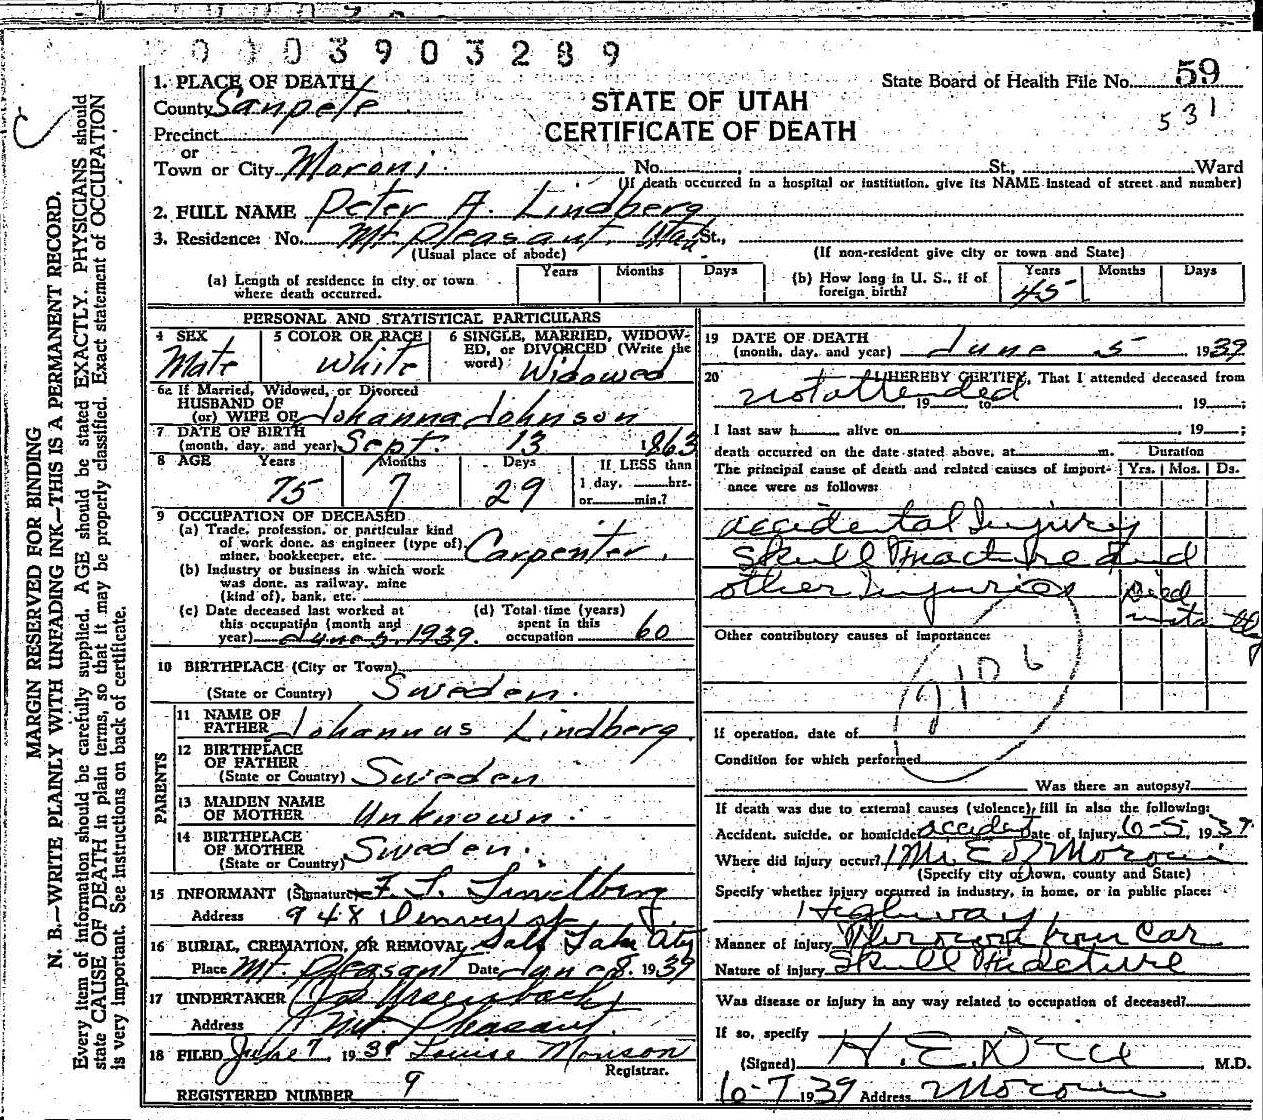 0 0 0 3 9 0 3 2 8 9
1. PLACE OF DEATH
State Board of Health File No. 59
County Sanpete
STATE OF UTAH
531
Precinct
CERTIFICATE OF DEATH
or
Town or City Moroni No. St., Ward
(If death occurred in a hospital or institution, give its NAME instead of street and number)
2. FULL NAME Peter A. Lindberg
3. Residence: No. Mt Pleasant, Utah St.,
(Usual place of abode) (If non-resident give city or town and State)
(a) Length of residence in city or town where death occurred. Years Months Days
(b) How long in U. S., if of foreign birth? Years 45 Months Days
MARGIN RESERVED FOR BINDING
N. B.—WRITE PLAINLY WITH UNFADING INK—THIS IS A PERMANENT RECORD.
Every item of information should be carefully supplied. AGE should be stated EXACTLY. PHYSICIANS should
state CAUSE OF DEATH in plain terms, so that it may be properly classified. Exact statement of OCCUPATION
is very important. See instructions on back of certificate.
PERSONAL AND STATISTICAL PARTICULARS
4 SEX Male
5 COLOR OR RACE White
6 SINGLE, MARRIED, WIDOWED, or DIVORCED (Write the word) Widowed
6a If Married, Widowed, or Divorced
HUSBAND OF
(or) WIFE OF Johanna Johnson
7 DATE OF BIRTH
(month, day, and year) Sept. 13 1863
8 AGE Years 75 Months 7 Days 29
If LESS than
1 day, hrs.
or min.?
9 OCCUPATION OF DECEASED
(a) Trade, profession, or particular kind
of work done, as engineer (type of),
miner, bookkeeper, etc. Carpenter.
(b) Industry or business in which work
was done, as railway, mine
(kind of), bank, etc.
(c) Date deceased last worked at
this occupation (month and
year) June 5, 1939.
(d) Total time (years)
spent in this
occupation 60
10 BIRTHPLACE (City or Town)
(State or Country) Sweden.
PARENTS
11 NAME OF
FATHER Johannus Lindberg
12 BIRTHPLACE
OF FATHER
(State or Country) Sweden
13 MAIDEN NAME
OF MOTHER Unknown.
14 BIRTHPLACE
OF MOTHER
(State or Country) Sweden.
15 INFORMANT (Signature) F. L. Lindberg
Address 948 Denver st
16 BURIAL, CREMATION, OR REMOVAL Salt Lake City
Place Mt. Pleasant Date June 8, 1939
17 UNDERTAKER
Address Mt Pleasant.
18 FILED June 7, 1939 Louise Monson
Registrar.
REGISTERED NUMBER 9
19 DATE OF DEATH
(month, day, and year) June 5 1939
20 I HEREBY CERTIFY, That I attended deceased from
not attended 19 to 19 ;
I last saw h alive on 19 ;
death occurred on the date stated above, at m. Duration
The principal cause of death and related causes of importance were as follows: Yrs. Mos. Ds.
accidental Injury
Skull Fracture and
other Injuries Died
Other contributory causes of importance:
210b
If operation, date of
Condition for which performed
Was there an autopsy?
If death was due to external causes (violence) fill in also the following:
Accident, suicide, or homicide accident Date of injury 6-5, 1939.
Where did injury occur? 1 Mi. E of Moroni
(Specify city or town, county and State)
Specify whether injury occurred in industry, in home, or in public place:
Highway
Manner of injury Thrown from Car
Nature of injury Skull Fracture
Was disease or injury in any way related to occupation of deceased?
If so, specify
(Signed) M.D.
6-7 1939 Address Moroni